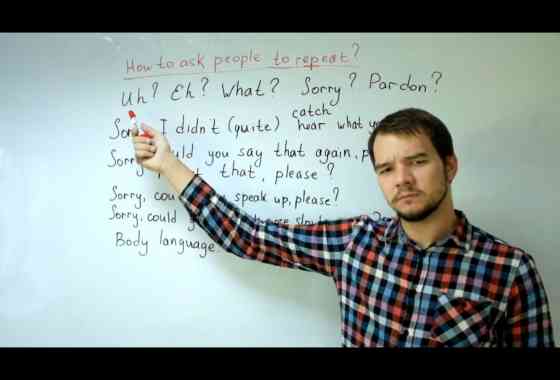 How to ask people to repeat?
Uh? Eh? What? Sorry? Pardon?
catch
I didn't (quite) hear what
Sorry, you say that again,
that, please?
Sorry, speak up, please?
Sorry, could
Body language